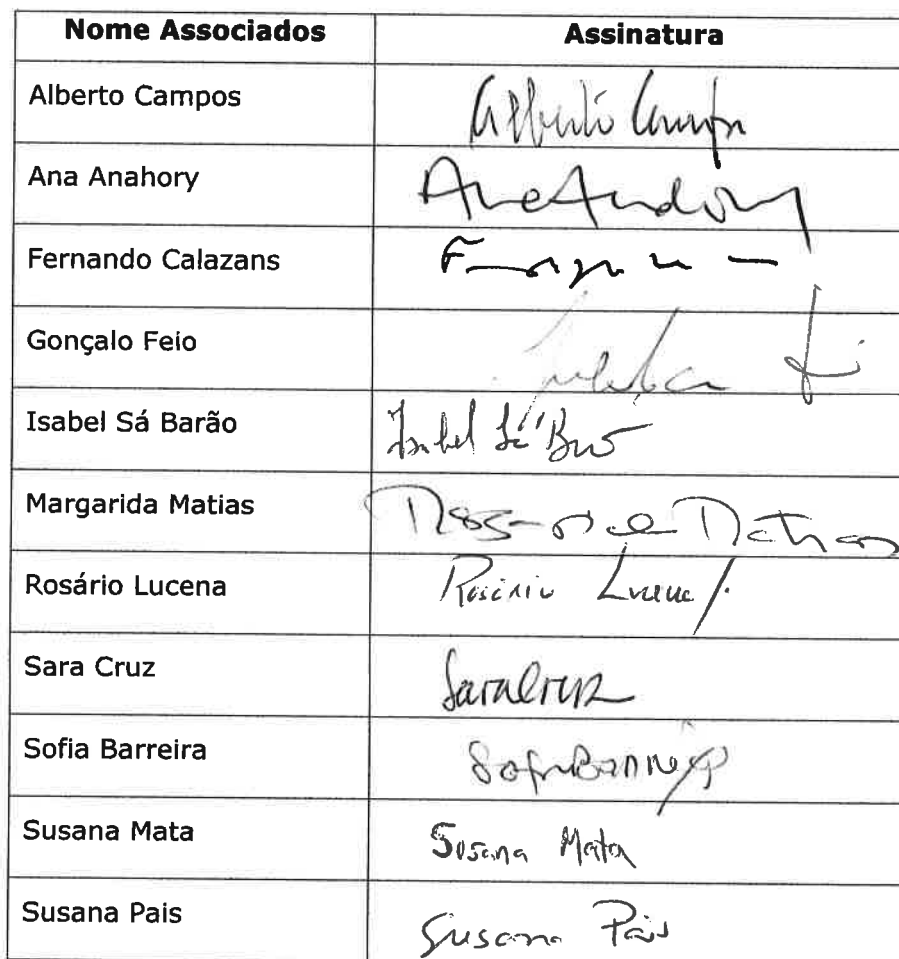 Nome Associados Assinatura
Alberto Campos Alberto Campos
Ana Anahory
Fernando Calazans
Gonçalo Feio
Isabel Sá Barão Isabel Sá
Margarida Matias
Rosário Lucena Rosário Lucena
Sara Cruz Sara Cruz
Sofia Barreira
Susana Mata Susana Mata
Susana Pais Susana Pais